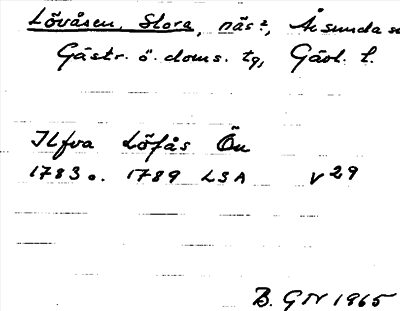 Lövåsen, Stora, näs?, Årsunda sn
Gästr. ö. doms. tg, Gävl. l.
Ilfva Löfås Ön
1783 o. 1789 LSA V 29
B. GN 1965